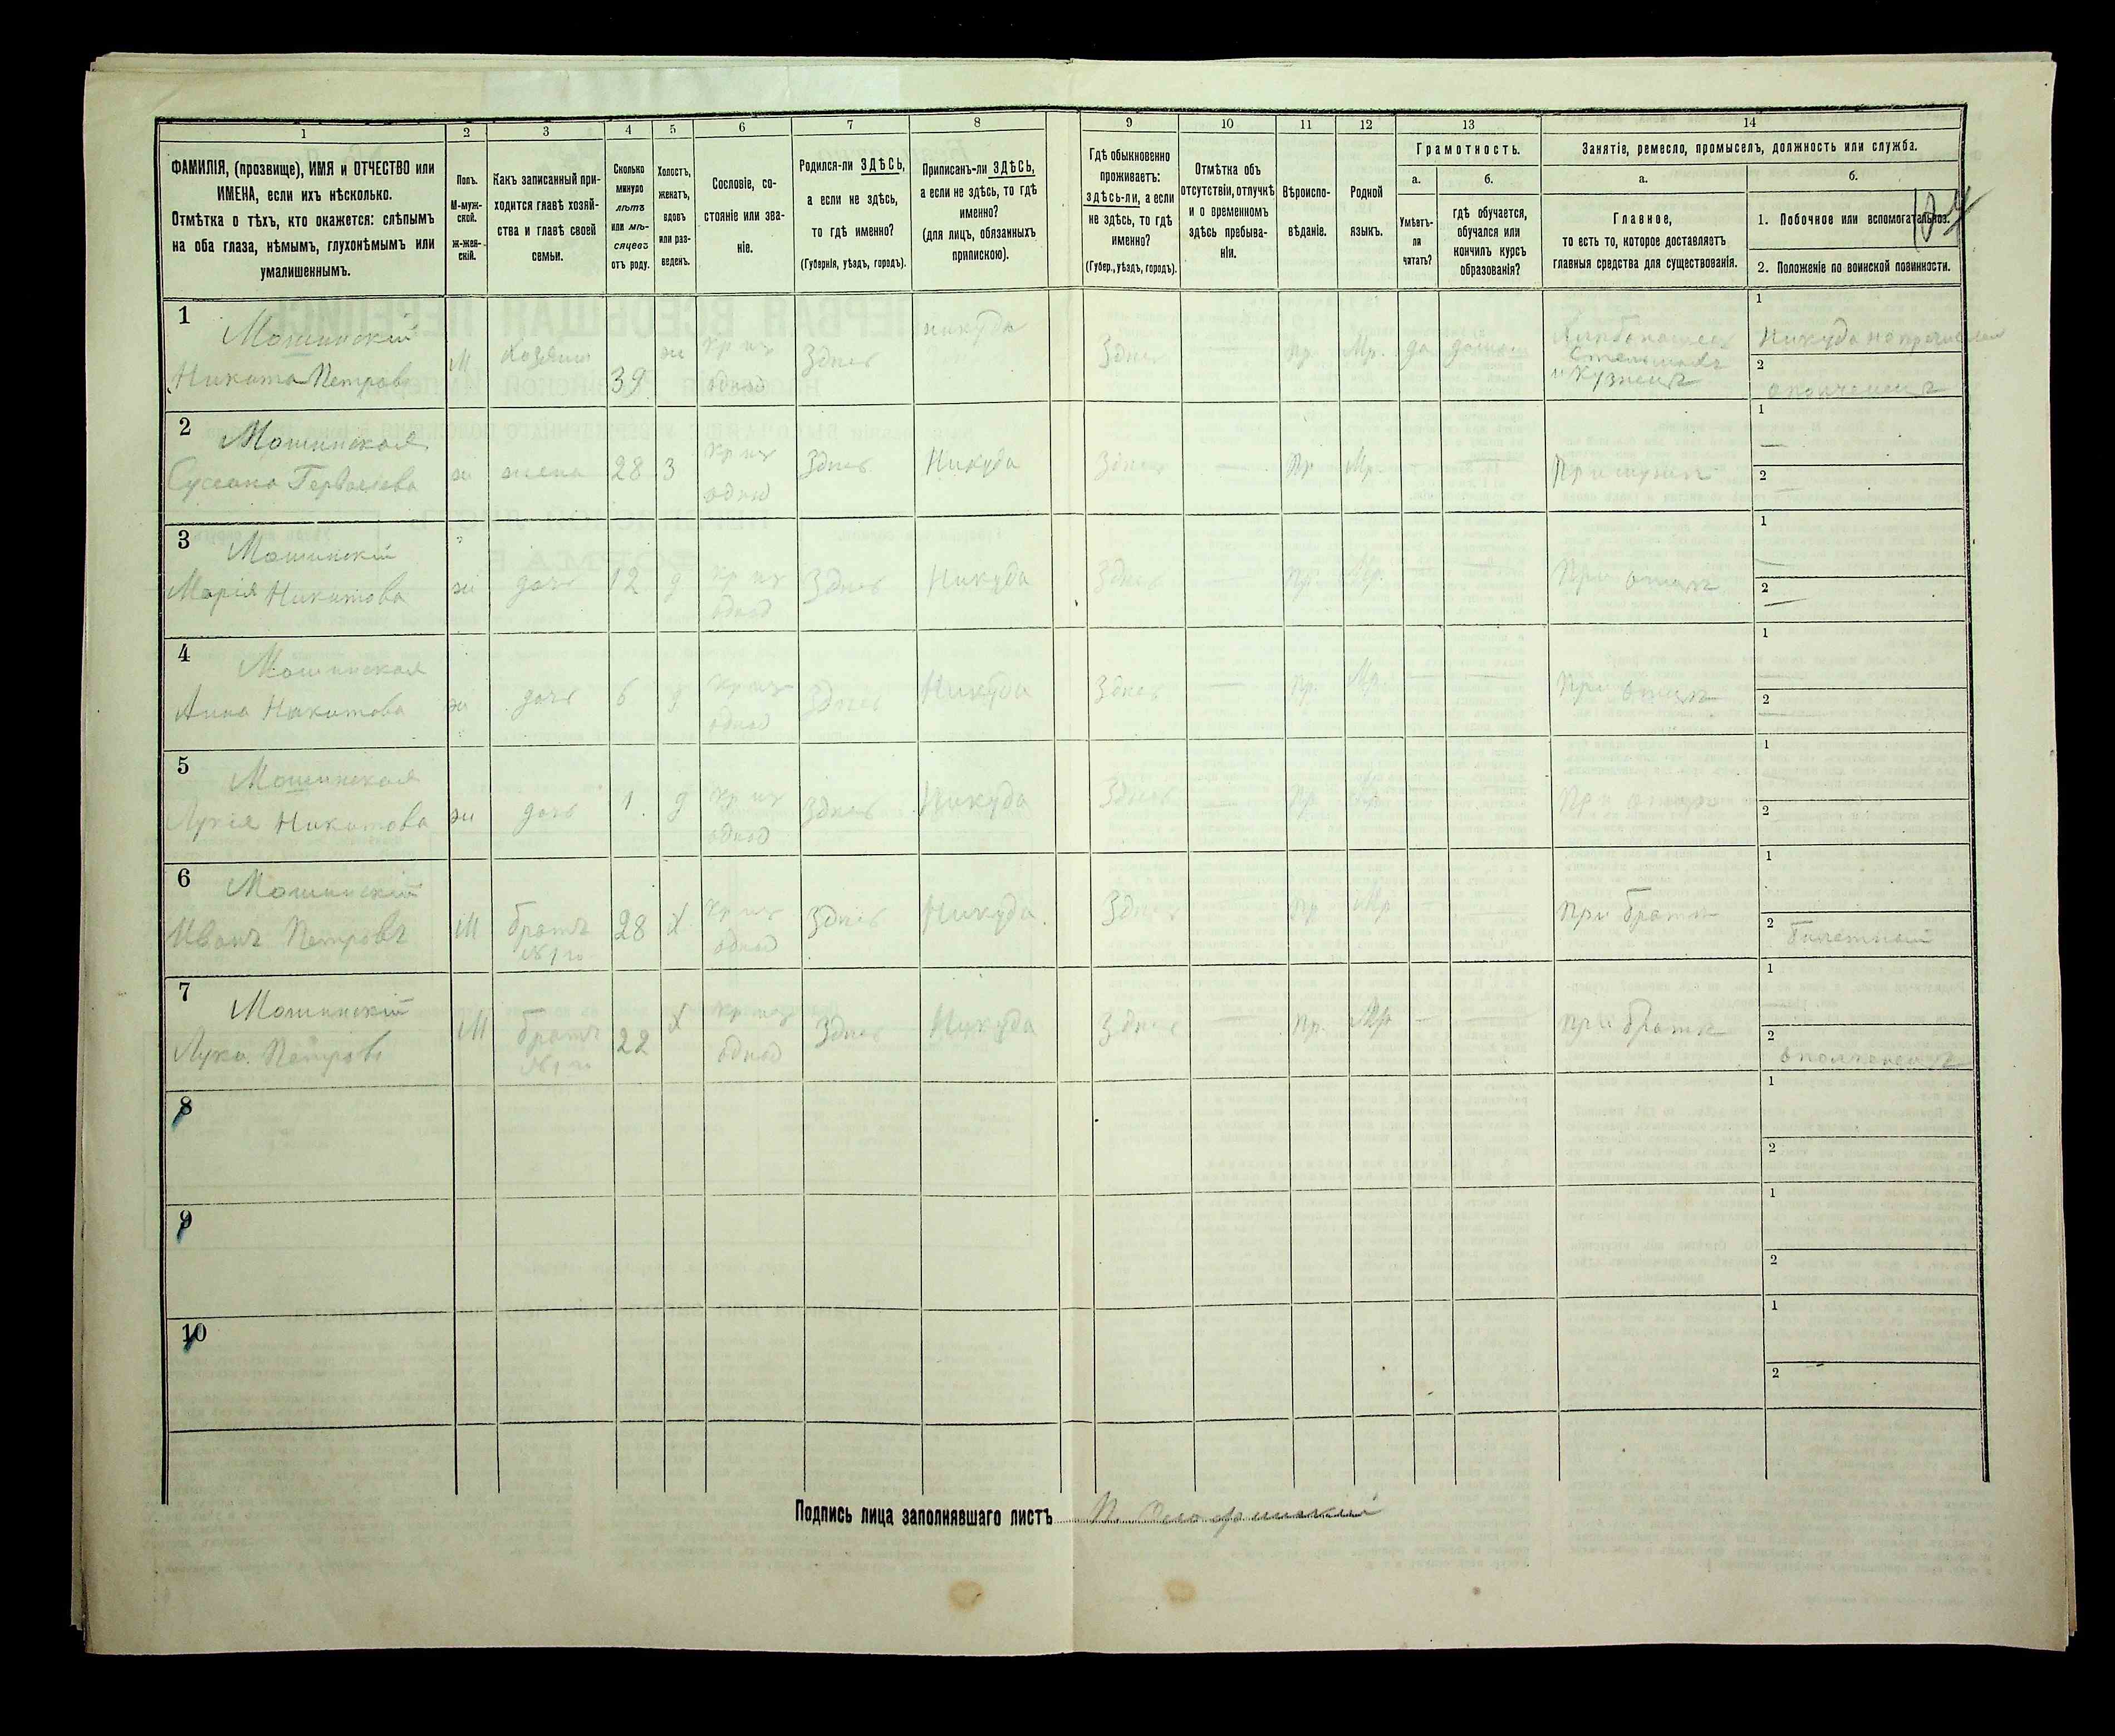 1 2 3 4 5 6 7 8 9 10 11 12 13 14
ФАМИЛІЯ, (прозвище), ИМЯ и ОТЧЕСТВО или
ИМЕНА, если ихъ нѣсколько.
Отмѣтка о тѣхъ, кто окажется: слѣпымъ
на оба глаза, нѣмымъ, глухонѣмымъ или
умалишеннымъ.
Полъ.
М-муж-
ской.
ж-жен-
скій.
Какъ записанный при-
ходится главѣ хозяй-
ства и главѣ своей
семьи.
Сколько
минуло
лѣтъ
или мѣ-
сяцевъ
отъ роду.
Холостъ,
женатъ,
вдовъ
или раз-
веденъ.
Сословіе, со-
стояніе или зва-
ніе.
Родился-ли ЗДѢСЬ,
а если не здѣсь,
то гдѣ именно?
(Губернія, уѣздъ, городъ).
Приписанъ-ли ЗДѢСЬ,
а если не здѣсь, то гдѣ
именно?
(для лицъ, обязанныхъ
припискою).
Гдѣ обыкновенно
проживаетъ:
здѣсь-ли, а если
не здѣсь, то гдѣ
именно?
(Губер., уѣздъ, городъ).
Отмѣтка объ
отсутствіи, отлучкѣ
и о временномъ
здѣсь пребыва-
ніи.
Вѣроиспо-
вѣданіе.
Родной
языкъ.
Грамотность.
а.
Умѣетъ-
ли
читать?
б.
гдѣ обучается,
обучался или
кончилъ курсъ
образованія?
Занятіе, ремесло, промыселъ, должность или служба.
а.
Главное,
то есть то, которое доставляетъ
главныя средства для существованія.
б.
1. Побочное или вспомогательное.
2. Положеніе по воинской повинности.
1 Мошинскій
Никита Петровъ
М Хозяин 39 ж Кр из
однод
Здѣсь никуда
Здѣсь Пр. Мр. да
и Кузнецъ
1 Никуда
2 ополченецъ
2 Мошинская
ж жена 28 З Кр из
однод
Здѣсь Никуда Здѣсь — Пр Мр. — — При мужѣ
1 —
2 —
3 Мошинскій
Марія Никитова ж дочь 12 д Кр из
однод
Здѣсь Никуда Здѣсь — Пр. Мр. — — При отцѣ
1 —
2 —
4 Мошинская
Анна Никитова ж дочь 6 д Кр из
однод
Здѣсь Никуда Здѣсь — Пр. Мр. — — При отцѣ
1
2 —
5 Мошинская
Лукія Никитова ж дочь 1. д Кр из
однод
Здѣсь Никуда Здѣсь — Пр. Мр. При отцѣ
1
2
6 Мошинскій
Иванъ Петровъ М братъ 28 Х Кр из
№ 1го однод
Здѣсь Никуда. Здѣсь Пр Мр — — При братѣ
1
2 билетный
7 Мошинскій
Лука Петровъ М братъ 22 Х Кр из
№ 1го однод
Здѣсь Никуда Здѣсь — Пр. Мр — — при братѣ
1
2 ополченецъ
8
1
2
9
1
2
10
1
2
Подпись лица заполнявшаго листъ